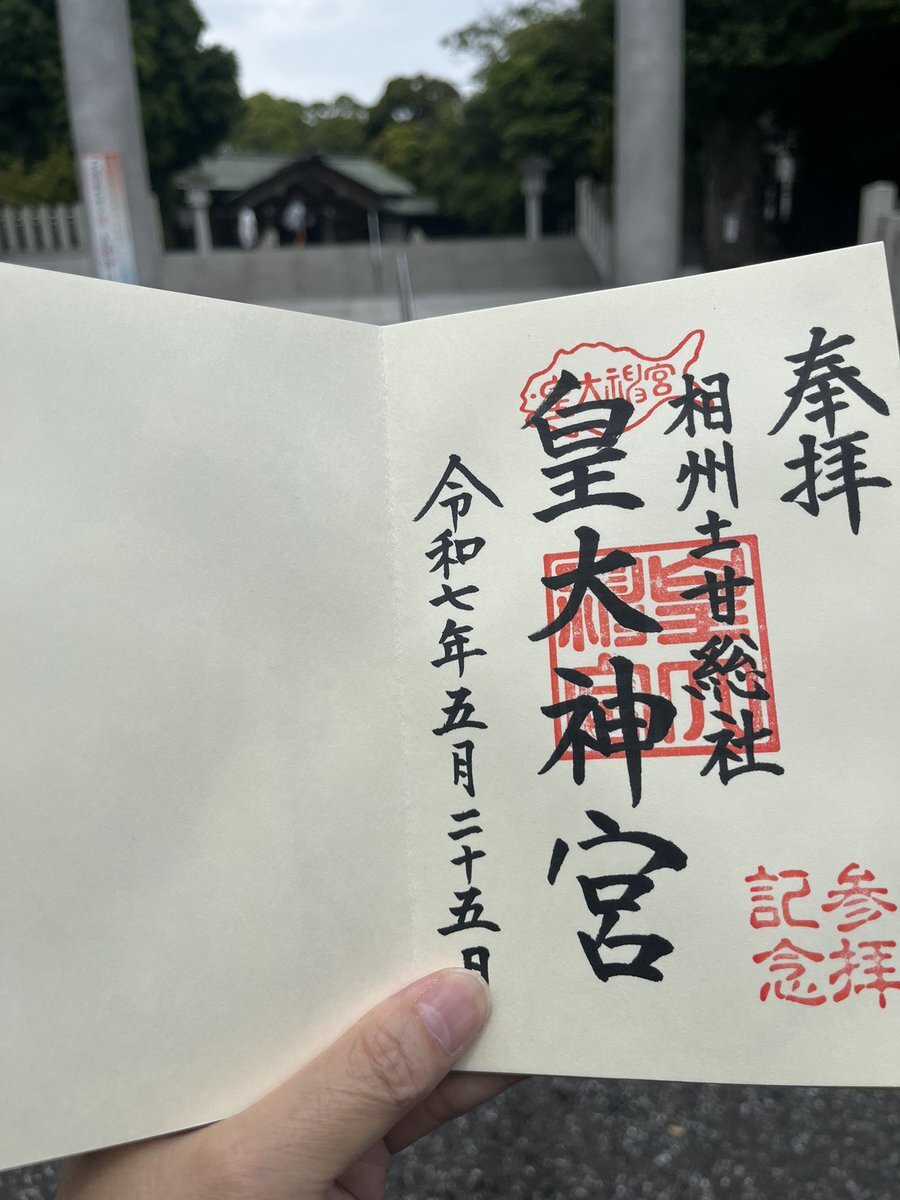 奉拝
相州土甘総社
皇大神宮
令和七年五月二十五日
皇大神宮
皇大神宮
参拝
記念